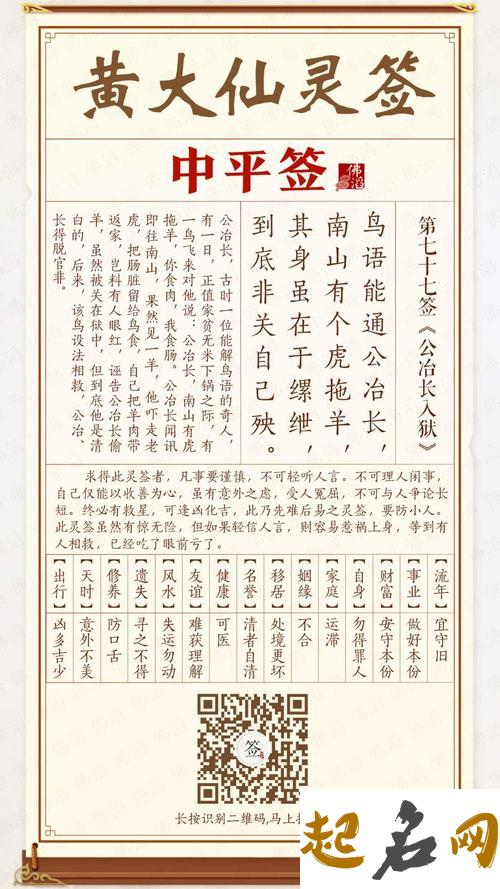 黄大仙灵签
中平签
佛滔
第七十七签《公冶长入狱》
鸟语能通公冶长，
南山有个虎拖羊，
其身虽在于缧绁，
到底非关自己殃。
公冶长，古时一位能解鸟语的奇人，
有一日，正值家贫无米下锅之际，有
一鸟飞来对他说：公冶长，南山有虎
拖羊，你食肉，我食肠。公冶长闻讯
即往南山，果然见一羊，他吓走老
虎，把肠脏留给鸟食，自己把羊肉带
返家，岂料有人眼红，诬告公冶长偷
羊，虽然被关在狱中，但到底他是清
白的，后来，该鸟设法相救，公冶、
长得脱官非。
求得此灵签者，凡事要谨慎，不可轻听人言。不可理人闲事，
自己仅能以收善为心，虽有意外之虑，受人冤屈，不可与人争论长
短。终必有救星，可逢凶化吉，此乃先难后易之灵签，要防小人。
此灵签虽然有惊无险，但如果轻信人言，则容易惹祸上身，等到有
人相救，已经吃了眼前亏了。
【流年】宜守旧
【事业】做好本份
【财富】安守本份
【自身】勿得罪人
【家庭】运滞
【姻缘】不合
【移居】处境更坏
【名誉】清者自清
【健康】可医
【友谊】难获理解
【风水】失运勿动
【遗失】寻之不得
【修养】防口舌
【天时】意外不美
【出行】凶多吉少
签
长按识别二维码,马上
起名网